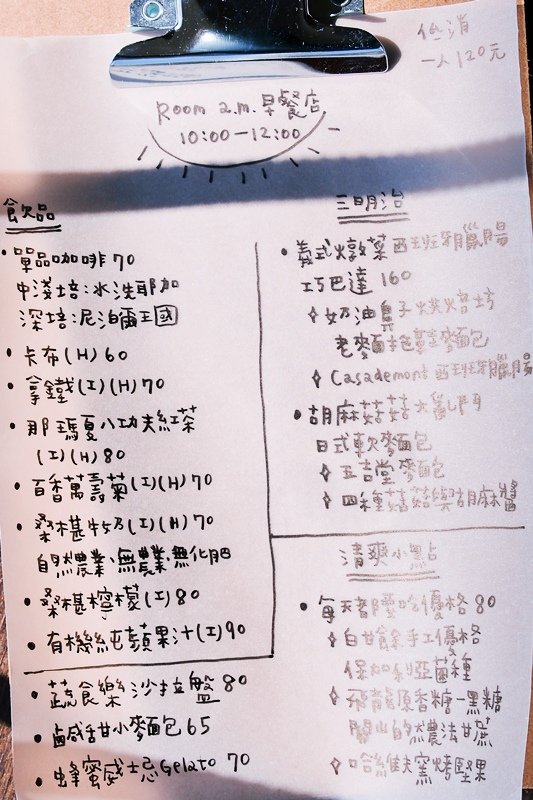 低消
一人120元
Room a.m. 早餐店
10:00-12:00
飲品
單品咖啡 70
中淺培:水洗耶加
深培:尼泊爾王國
卡布(H) 60
拿鐵(I)(H) 70
那瑪夏八功夫紅茶
(I)(H) 80
百香萬壽菊(I)(H) 70
桑椹牛奶(I)(H) 70
自然農業·無農業·無化肥
桑椹檸檬(I) 80
有機純蘋果汁(I) 90
蔬食樂沙拉盤 80
鹹甜小麵包 65
蜂蜜威士忌Gelato 70
三明治
義式燉菜西班牙臘腸
巧巴達 160
奶油鼻子烘焙坊
老麵
Casademont 西班牙臘腸
胡麻菇菇大亂鬥
日式軟麵包
五吉堂麵包
四種菇菇與胡麻醬
清爽小點
每天豬隊吃優格 80
白甘餘手工優格
保加利亞菌種
飛龍原香糖-黑糖
關山自然農法甘蔗
哈維夫窯烤堅果